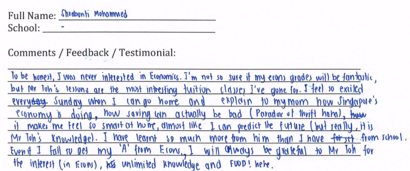 Full Name: Shrabanti Mohammed
School: -
Comments / Feedback / Testimonial:
To be honest, I was never interested in Economics. I'm not so sure if my econs grades will be fantastic,
but Mr Toh's lessons are the most interesting tuition classes I've gone for. I feel so excited
everyday Sunday when I can go home and explain to my mom how Singapore's
economy is doing, how saving can actually be bad (Paradox of thrift haha), how
it makes me feel so smart at home, almost like I can predict the future (but really, it is
Mr Toh's knowledge). I have learnt so much more from him than I have from school.
Even if I fail to get my 'A' from Econs, I will always be grateful to Mr Toh for
the interest (in Econs), his unlimited knowledge and FOOD! hehe.